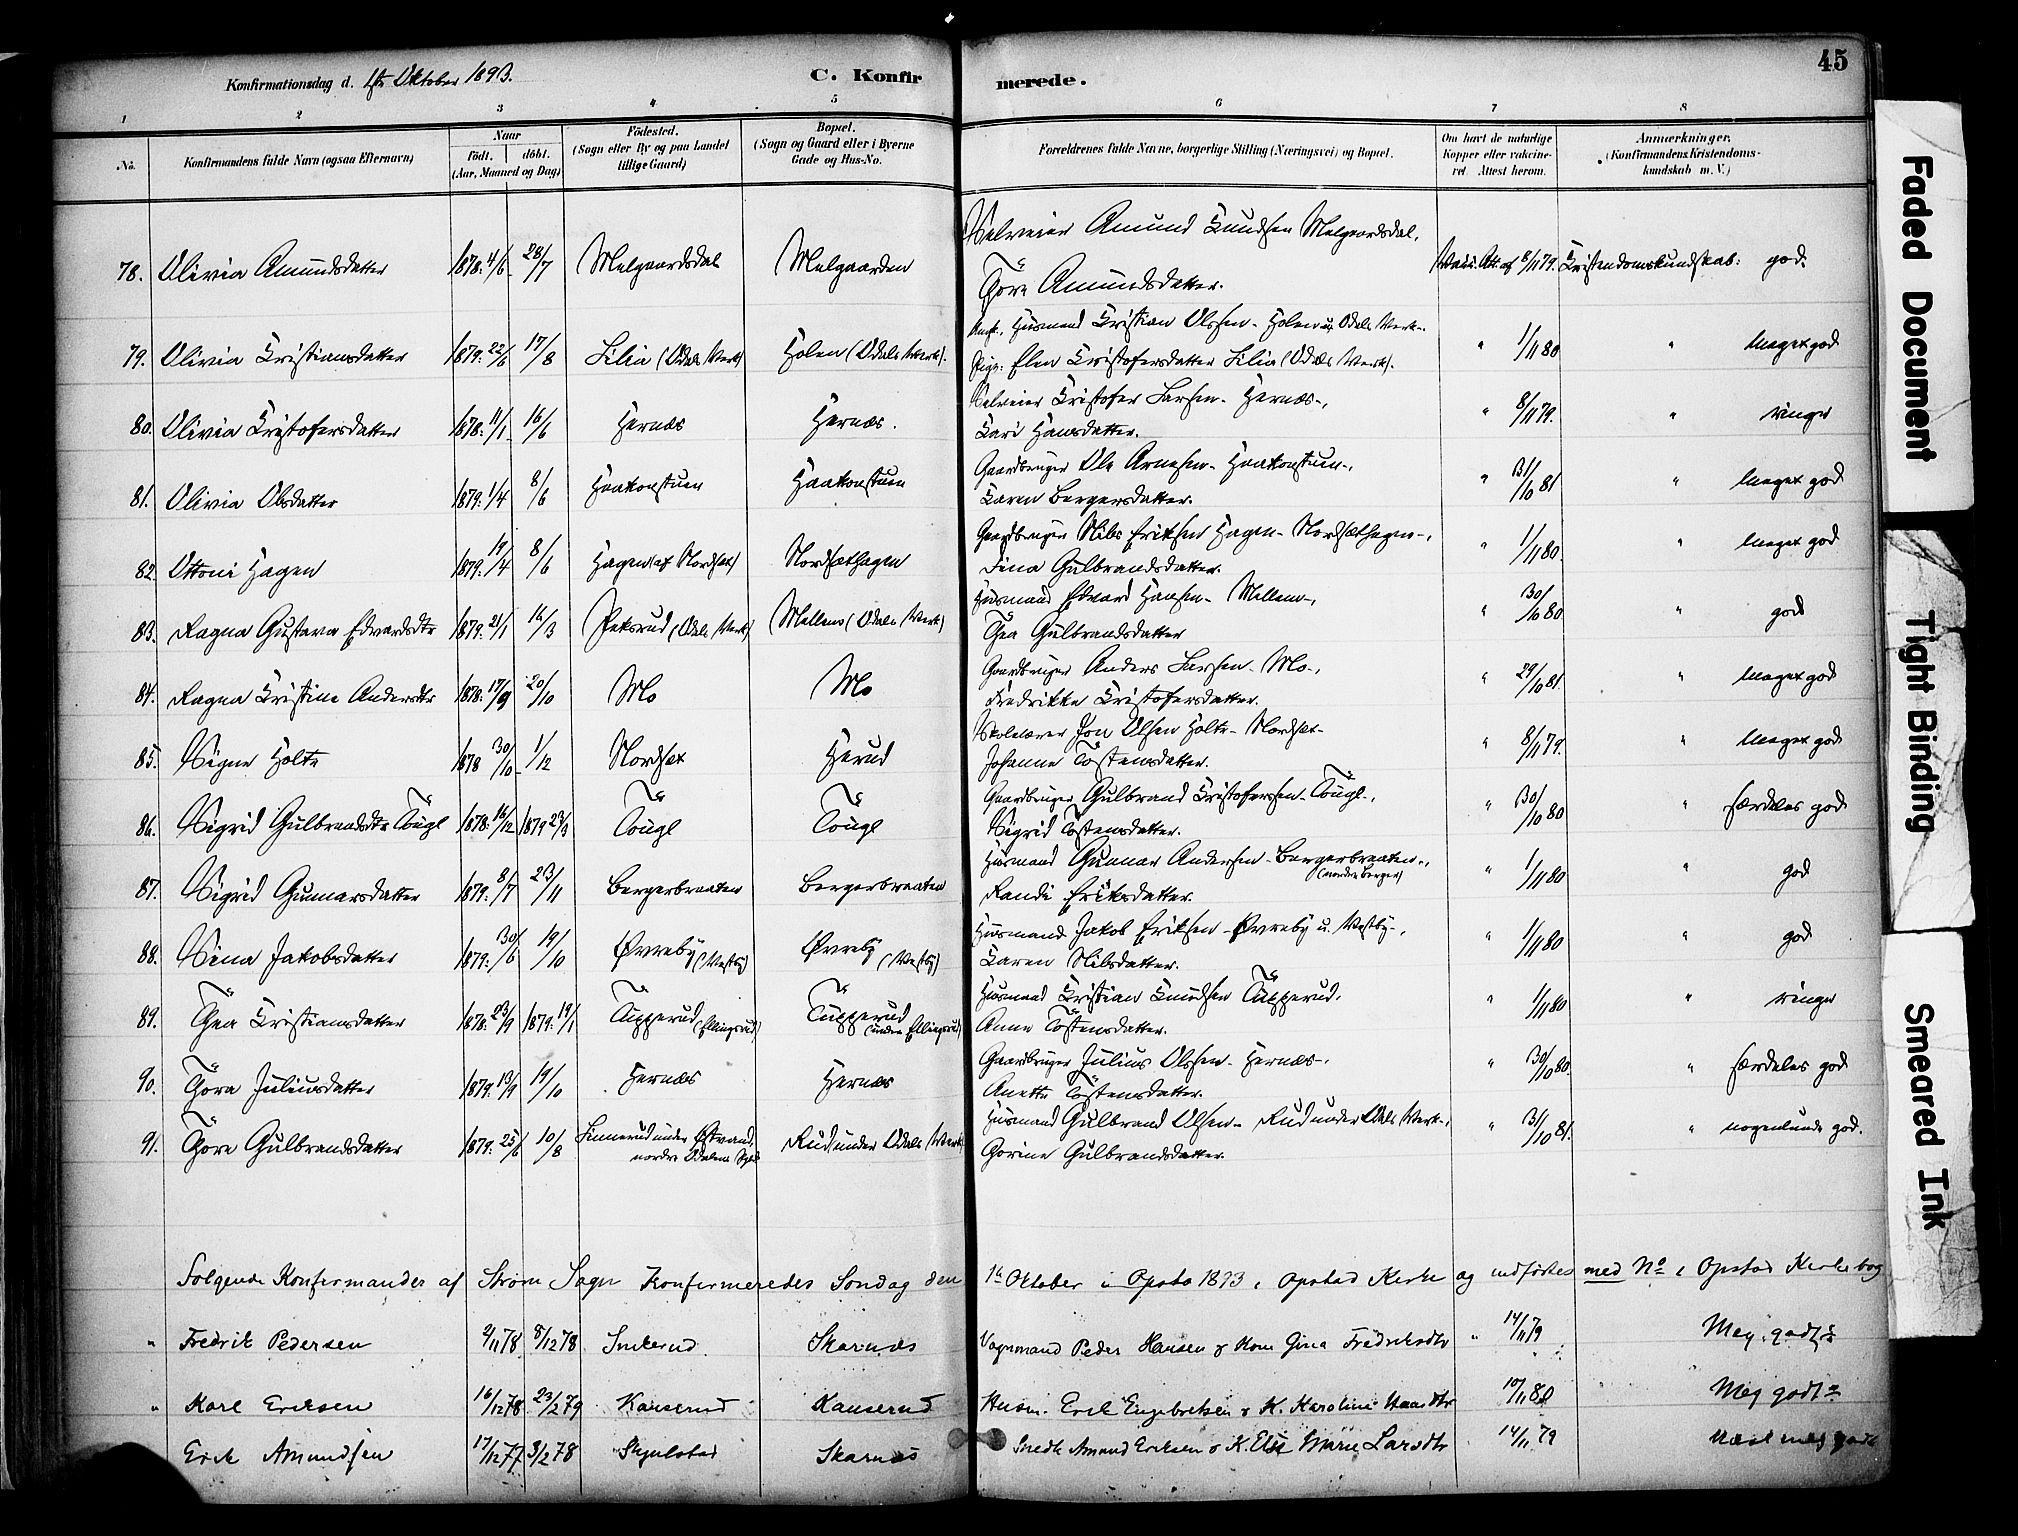 Konfirmationsdag d. 1ste Oktober 1893. C. Konfirmerede. 45
1 2 3 4 5 6 7 8
No. Konfirmandens fulde Navn (ogsaa Efternavn) Naar Født. døbt. (Aar, Maaned og Dag) Fødested. (Sogn eller By og paa Landet tillige Gaard) Bopæl. (Sogn og Gaard eller i Byerne Gade og Hus-No. Forældrenes fulde Navne, borgerlige Stilling (Næringsvei) og Bopæl. Om havt de naturlige Kopper eller vakcineret. Attest herom. Anmærkninger, (Konfirmandens Kristendomskundskab m. V.)
78. Olivia Amundsdatter 1878. 4/6 28/7 Melgaardsdal Melgaarden Selveier Amund Knudsen Melgaardsdal,
Tore Amundsdatter. Vacc. Att. af 8/11 79. Kristendomskundskab: god.
79. Olivia Kristiansdatter 1879. 22/6 17/8 Lilia (Odals Værk) Holen (Odals Værk). Husmand Kristian Olsen Holen u. Odals Værk.
Pige: Elen Kristofersdatter Lilia (Odals Værk). " 1/11 80 " Meget god
80. Olivia Kristofersdatter 1878. 11/1 16/6 Hernæs Hernæs. Selveier Kristofer Larsen Hernæs,
Kari Hansdatter. " 8/11 79. " ringe
81. Olivia Olsdatter 1879. 1/4 8/6 Haakonstuen Haakonstuen Gaardbruger Ole Arnesen Haakonstuen,
Karen Bergersdatter. " 31/10 81 " Meget god
82. Ottoni Hagen 1879. 19/4 8/6 Hagen (af Nordset) Nordsæthagen Gaardbruger Nils Eriksen Hagen Nordsæthagen,
Dina Gulbrandsdatter. " 1/11 80. " Meget god
83. Ragna Gustava Edvardsdtr 1879. 21/1 16/3 (Odals Værk) Mellem (Odals Værk) Husmand Edvard Hansen Mellem,
Tea Gulbrandsdatter " 30/10 80 " god
84. Ragna Kristine Andersdtr 1878. 17/9 20/10 Mo Mo Gaardbruger Anders Larsen Mo,
Fredrikke Kristofersdatter. " 29/10 81. " Meget god
85. Signe Holte 1878 30/10 1/12 Nordset Herud Skolelærer Jon Olsen Holte Nordset
Johanne Tostensdatter. " 8/11 79. " Meget god
86. Sigrid Gulbrandsdtr Tougl 1878. 16/12 1879 23/3 Tougl Tougl Gaardbruger Gulbrand Kristofersen Tougl,
Sigrid Tostensdatter. " 30/10 80 " særdeles god
87. Sigrid Gunnarsdatter 1879. 8/7 23/11 Bergerbraaten Bergerbraaten Husmand Gunnar Andersen Bergerbraaten, (nordre Berger)
Randi Eriksdatter. " 1/11 80 " god
88. Sina Jakobsdatter 1879. 30/6 19/10 Øvreby (Vestby) Øvreby (Vestby) Husmand Jakob Eriksen Øvreby u. Vestby,
Karen Nilsdatter. " 1/11 80 " god
89. Tea Kristiansdatter 1878. 23/9 1879. 19/1 Tupperud (Ellingsrud) Tupperud (under Ellingsrud) Husmand Kristian Knudsen Tupperud,
Anne Tostensdatter. " 1/11 80 " ringe
90. Tora Juliusdatter 1879. 13/9 19/10 Hernæs Hernæs Gaardbruger Julius Olsen Hernæs,
Anette Tostensdatter. " 30/10 80. " særdeles god
91. Tore Gulbrandsdatter 1879. 25/6 10/8 Linnerud under Østvand, nordre Odalen Rud under Odals Værk Husmand Gulbrand Olsen Rud under Odals Værk,
Gorine Gulbrandsdatter. " 31/10 81. " nogenlunde god.
Følgende Konfirmander af Strøm Sogn Konfirmeredes Søndag den 1ste Oktober i Opstad Kirke og indføres med No i Opstad Kirkebog
" Fredrik Pedersen 2/11 78 8/12 78 Skarnæs Vognmand Peder Hansen & Kone Gina Fredriksdtr " 14/11 79 Meg. godt
" Karl Eriksen 16/12 78 23/2 79 Kauserud Kauserud Husm. Erik Engebretsen & K. Karoline Hansdtr 10/11 80 Meg godt
Erik Amundsen 17/12 77 3/2 78 Skarnæs Amund Eriksen & K. Else Marie Larsdtr 14/11 79
Faded Document
Tight Binding
Smeared Ink